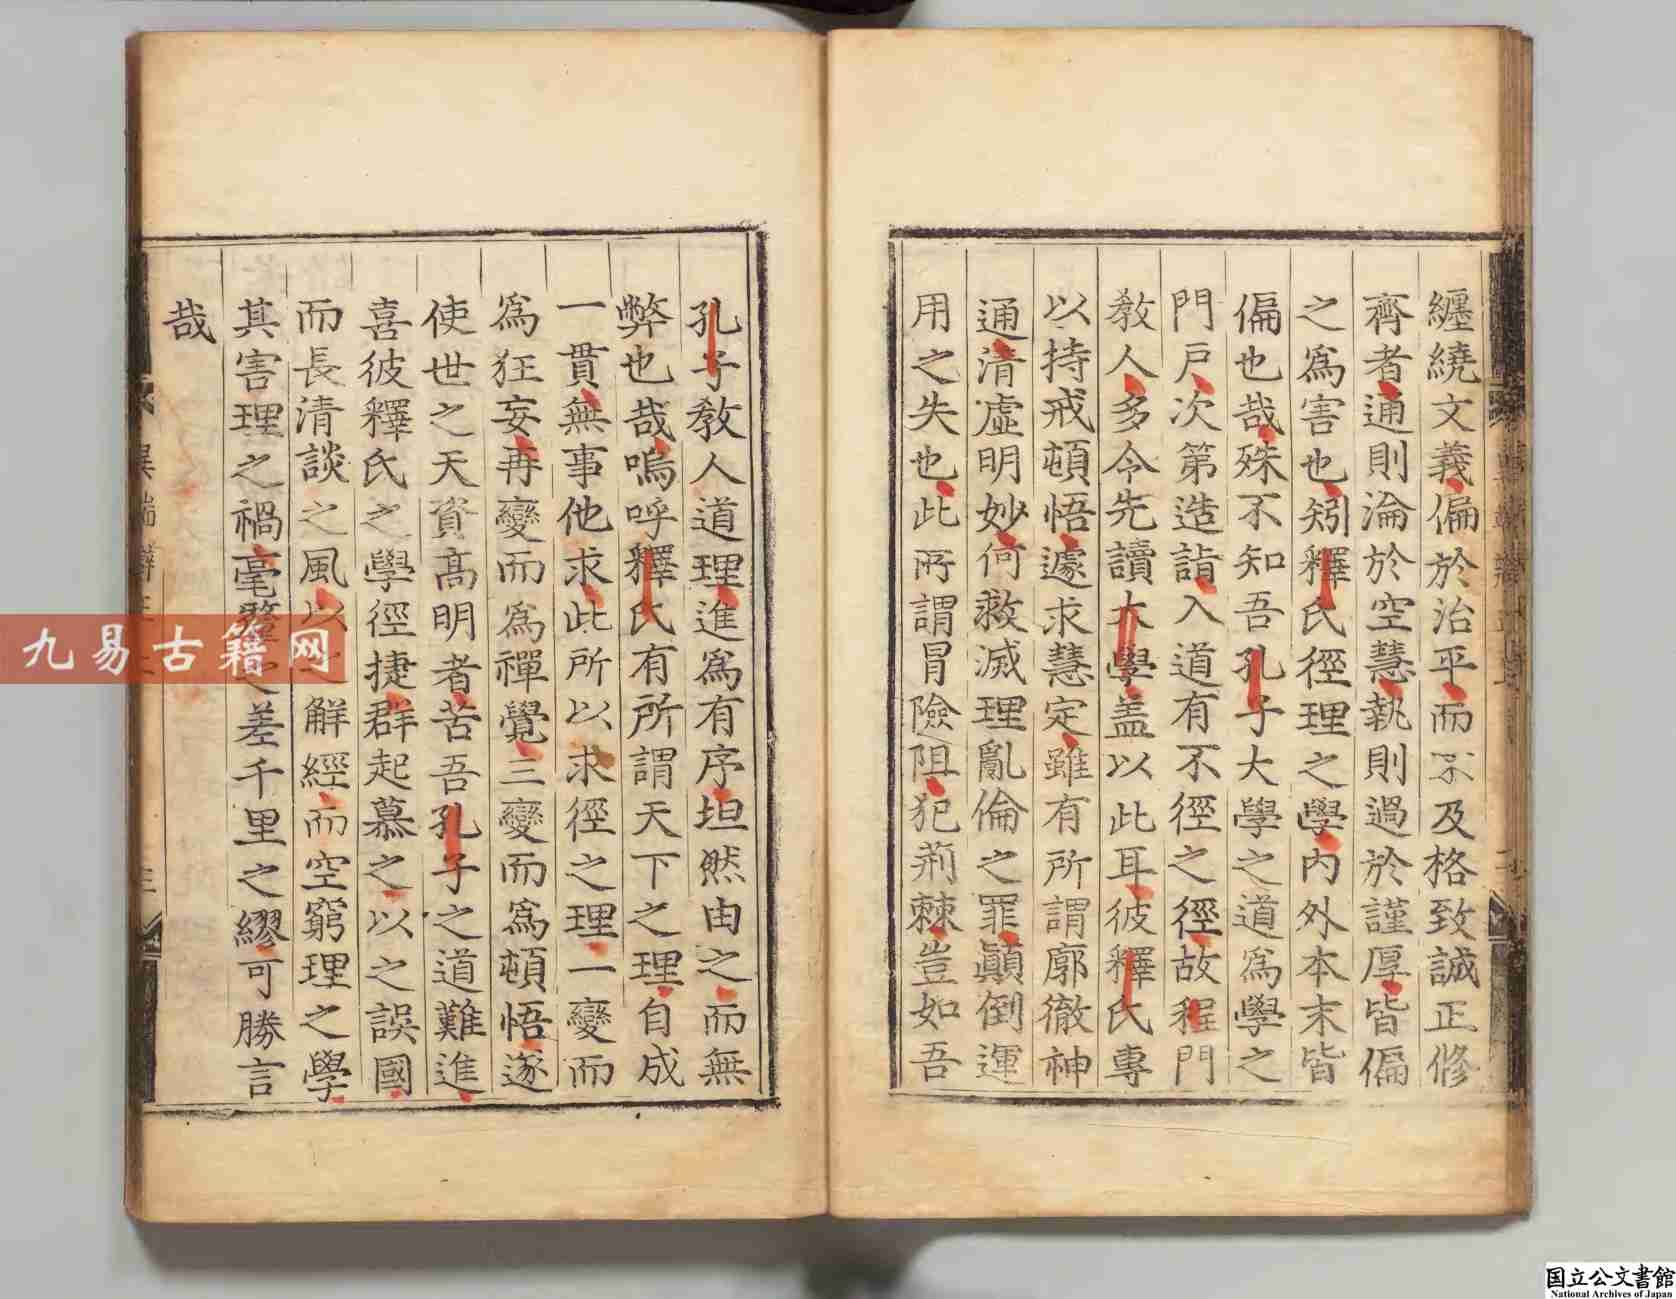 纏繞文義偏於治平而不及格致誠正修
齊者通則淪於空慧執則過於謹厚皆偏
之爲害也矧釋氏徑理之學內外本末皆
偏也哉殊不知吾孔子大學之道爲學之
門戶次第造詣入道有不徑之徑故程門
教人多令先讀大學蓋以此耳彼釋氏專
以持戒頓悟遽求慧定雖有所謂廓徹神
通清虛明妙何救滅理亂倫之罪顚倒運
用之失也此所謂冒險阻犯荊棘豈如吾
孔子教人道理進爲有序坦然由之而無
弊也哉嗚呼釋氏有所謂天下之理自成
一貫無事他求此所以求徑之理一變而
爲狂妄再變而爲禪覺三變而爲頓悟遂
使世之天資高明者苦吾孔子之道難進
喜彼釋氏之學徑捷群起慕之以之誤國
而長清談之風以之解經而空窮理之學
其害理之禍毫釐之差千里之繆可勝言
哉
異端辯正
三
九易古籍网
国立公文書館
National Archives of Japan